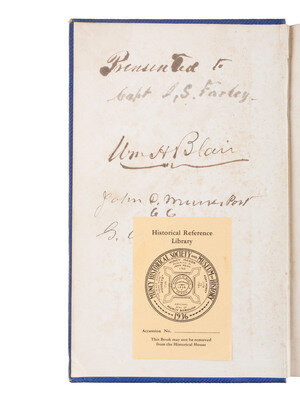 Presented to
Capt J, S. Farley.
Wm A Blair
John C, Post
G.
Historical Reference
Library
MUNCY HISTORICAL SOCIETY AND MUSEUM OF HISTORY
1936
Accession No.
This Book may not be removed
from the Historical House